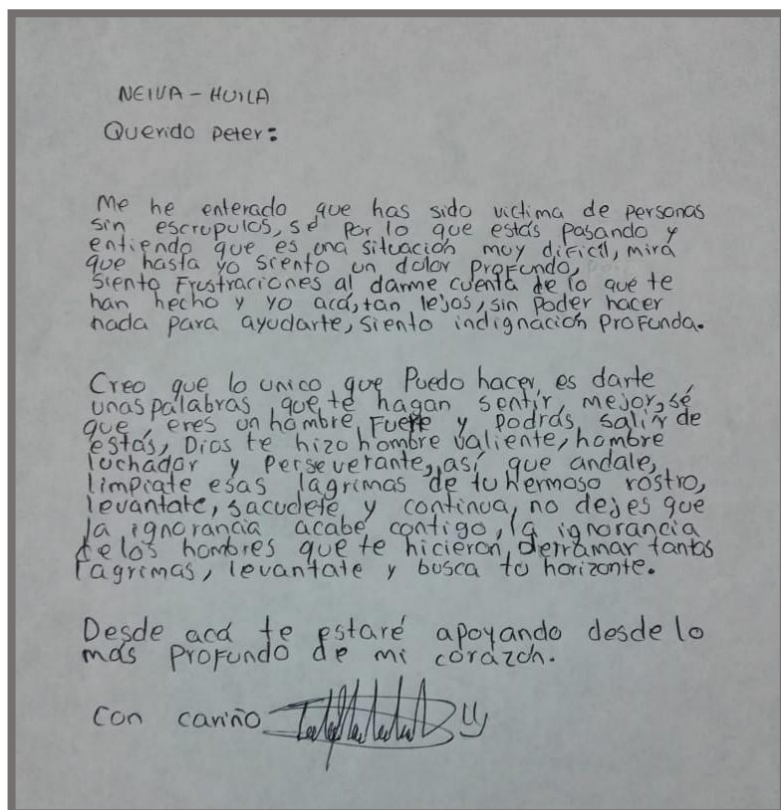 NEIVA - HUILA
Querido Peter:
Me he enterado que has sido victima de personas
sin escrupulos, sé por lo que estás pasando y
entiendo que es una situación muy dificil, mira
que hasta yo siento un dolor profundo,
siento frustraciones al darme cuenta de lo que te
han hecho y yo acá, tan lejos, sin poder hacer
nada para ayudarte, siento indignación profunda.
Creo que lo unico que puedo hacer es darte
unas palabras que te hagan sentir mejor, sé
que eres un hombre fuerte y podrás salir de
estás, Dios te hizo hombre valiente, hombre
luchador y perseverante, así que andale,
limpiate esas lagrimas de tu hermoso rostro,
levantate, sacudete y continua, no dejes que
la ignorancia acabe contigo, la ignorancia
de los hombres que te hicieron derramar tantas
lagrimas, levantate y busca tu horizonte.
Desde acá te estaré apoyando desde lo
más profundo de mi corazón.
Con cariño